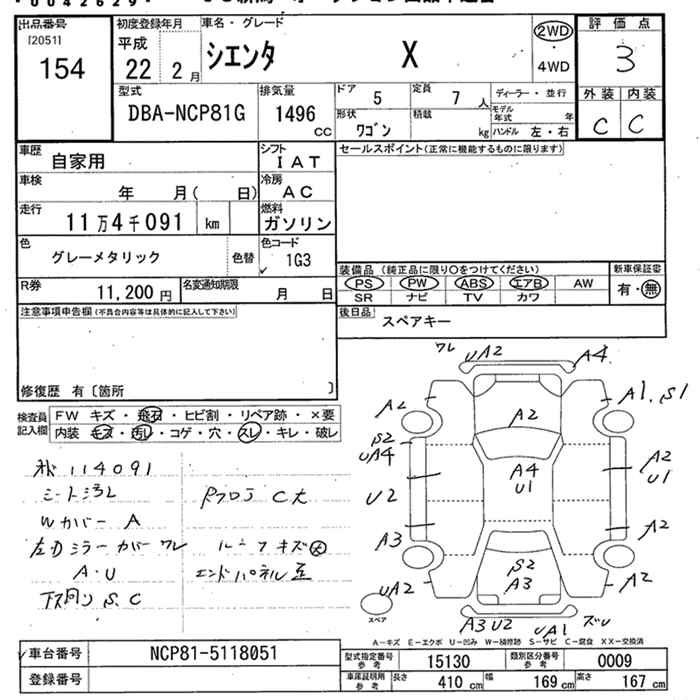 出品番号 初度登録年月 車名・グレード 評価点
[2051] 平成 シエンタ X 2WD 3
154 22 2月 ・4WD
型式 排気量 ドア 5 定員 7人 ディーラー・並行 外装 内装
DBA-NCP81G 1496 CC 形状 ワゴン 積載 kg モデル年式 年 C C
ハンドル 左・右
車歴 自家用 シフト IAT セールスポイント(正常に機能するものに限ります)
車検 年 月( 日) 冷房 AC
走行 11万4千091 km 燃料 ガソリン
色 グレーメタリック 色替 色コード 1G3
装備品(純正品に限り○をつけてください) 新車保証書
R券 11,200円 名変通知期限 月 日 PS PW ABS エアB AW 有・無
SR ナビ TV カワ
注意事項申告欄(不具合内容等は具体的に記入して下さい) 後日品 スペアキー
修復歴 有〔箇所 〕
ワレ UA2 A4
検査員記入欄 FW キズ・飛石・ヒビ割・リペア跡・×要
内装 キズ・汚レ・コゲ・穴・スレ・キレ・破レ
A2 A2 A1.S1
S2 UA4 A4 U1 A2 U1
114091
U2
Wカバー A A3 A2
左Dミラーカバーワレ ルーフキズ大
A・U エンドパネル S2 A3
下回り S.C UA2 A2
スペア A3 U2 UA1
A-キズ E-エクボ U-凹み W-補修跡 S-サビ C-腐食 XX-交換済
車台番号 NCP81-5118051 型式指定番号 参考 15130 類別区分番号 参考 0009
登録番号 車庫証明用 参考 長さ 410 cm 幅 169 cm 高さ 167 cm